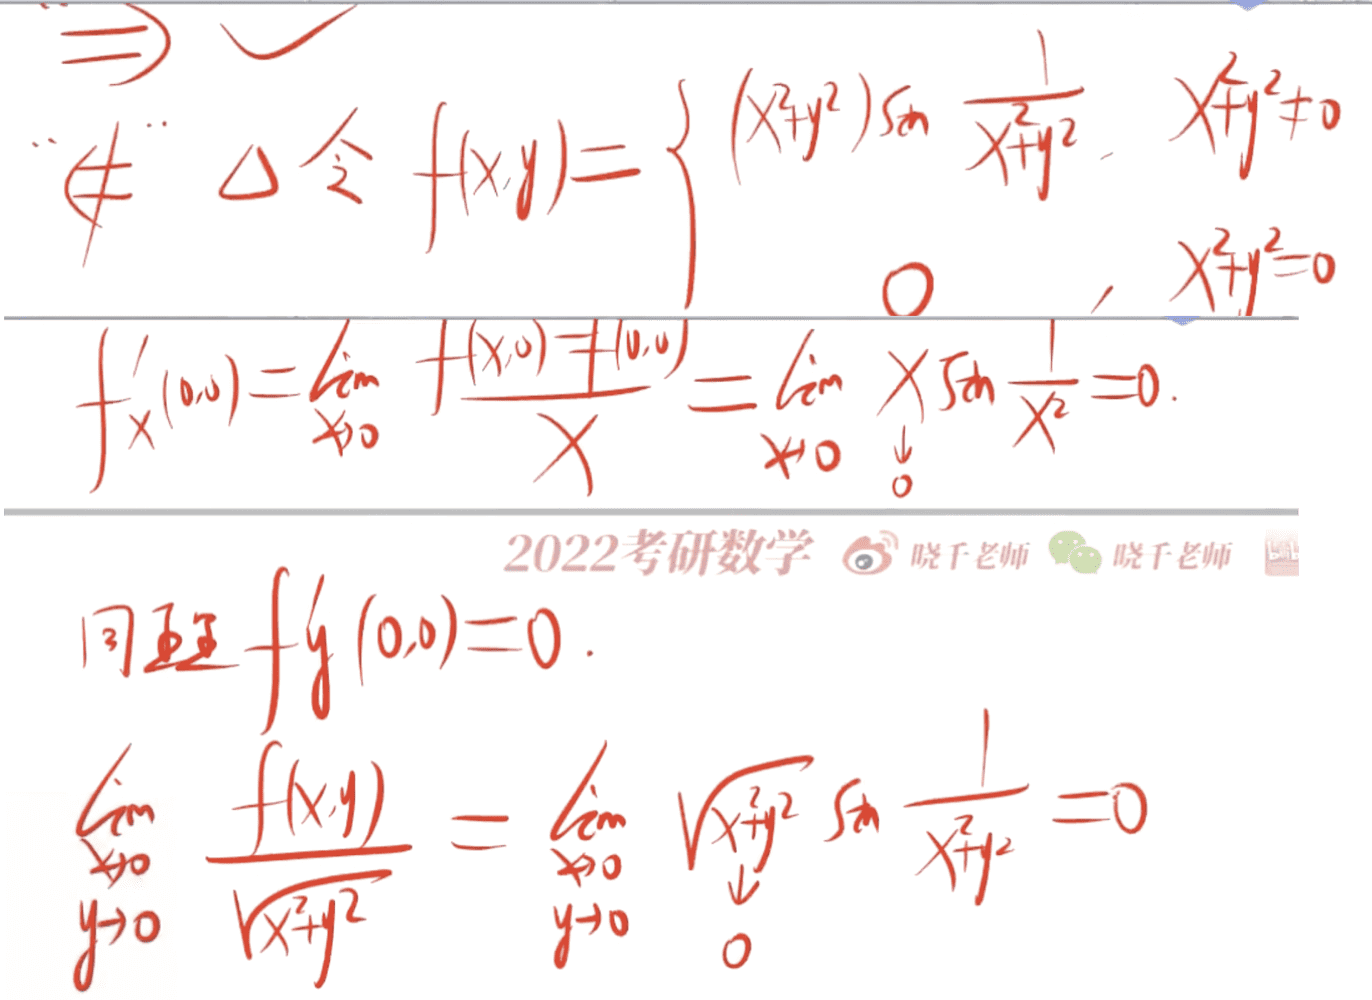 "⇒" ✓
"⇍" △令 f(x,y)= { (x²+y²)sin 1/(x²+y²), x²+y²≠0
0, x²+y²=0
f'x(0,0)=lim x→0 (f(x,0)-f(0,0))/x = lim x→0 x sin 1/x² =0.
↓
0
2022考研数学 晓千老师 晓千老师
同理 f'y(0,0)=0.
lim x→0 y→0 f(x,y)/√(x²+y²) = lim x→0 y→0 √(x²+y²) sin 1/(x²+y²) =0
↓
0